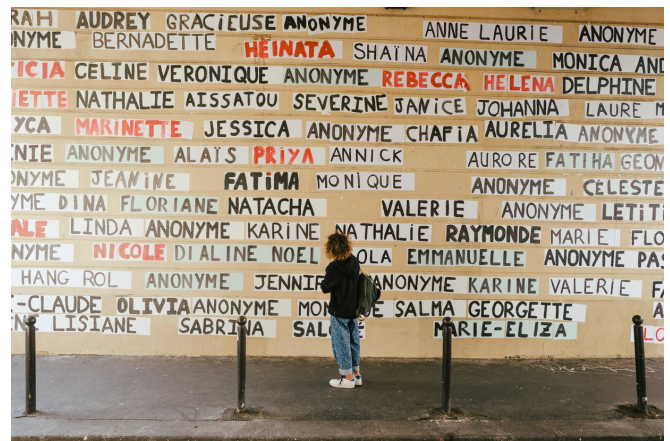 RAH AUDREY GRACIEUSE ANONYME ANNE LAURIE ANONYME
NYME BERNADETTE HEINATA SHAÏNA ANONYME MONICA AND
ICIA CÉLINE VERONIQUE ANONYME REBECCA HELENA DELPHINE
IETTE NATHALIE AISSATOU SEVERINE JANICE JOHANNA LAURE
YCA MARINETTE JESSICA ANONYME CHAFIA AURELIA ANONYME
NIE ANONYME ALAÏS PRIYA ANNICK AURORE FATIHA GEOM
ONYME JEANINE FATIMA MONIQUE ANONYME CÉLESTE
YME DINA FLORIANE NATACHA VALERIE ANONYME LETIT
ALE LINDA ANONYME KARINE NATHALIE RAYMONDE MARIE FLO
NYME NICOLE DIALINE NOEL OLA EMMANUELLE ANONYME PAS
HANG ROL ANONYME JENNIF ANONYME KARINE VALERIE FA
-CLAUDE OLIVIA ANONYME MON E SALMA GEORGETTE
LISIANE SABRINA SAL MARIE-ELIZA LO